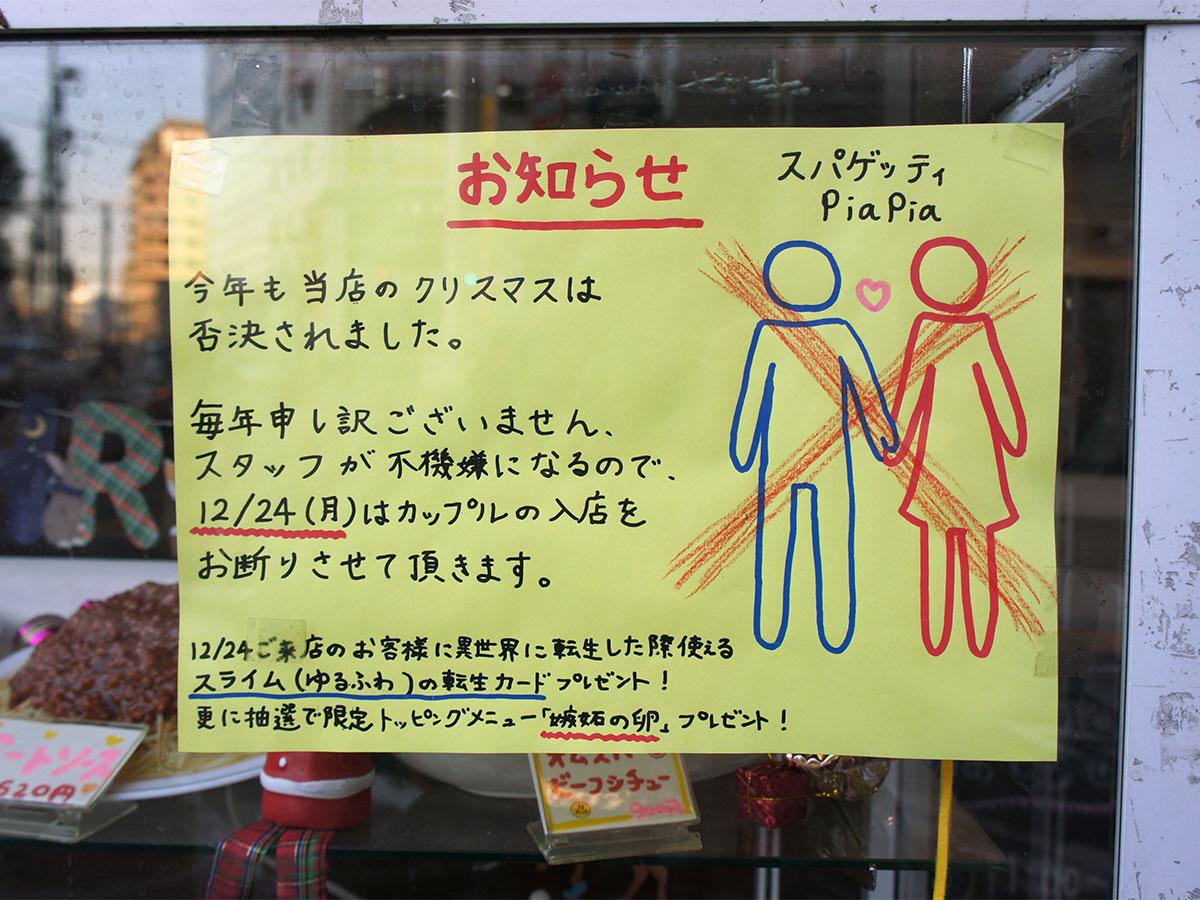 お知らせ
スパゲッティ
PiaPia
今年も当店のクリスマスは
否決されました。
毎年申し訳ございません、
スタッフが不機嫌になるので、
12/24(月)はカップルの入店を
お断りさせて頂きます。
12/24ご来店のお客様に異世界に転生した際使える
スライム(ゆるふわ)の転生カードプレゼント！
更に抽選で限定トッピングメニュー「嫉妬の卵」プレゼント！
R
ートソース
520円
ビーフシチュー
900円